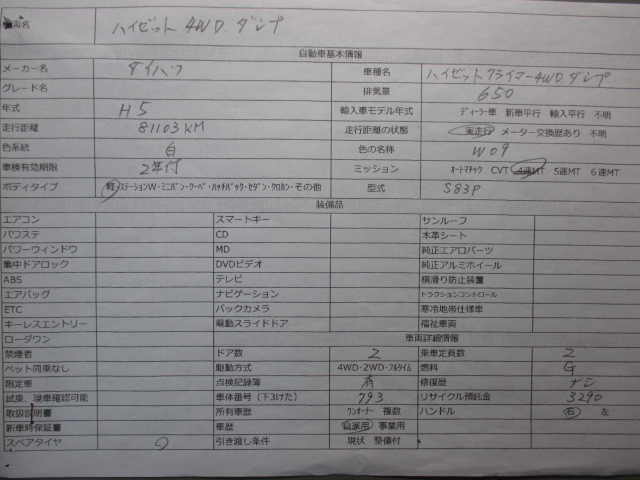 車両名 ハイゼット 4WD. ダンプ
自動車基本情報
メーカー名 ダイハツ 車種名 ハイゼットクライマー4WD.ダンプ
グレード名 排気量 650
年式 H5 輸入車モデル年式 ディーラー車 新車平行 輸入平行 不明
走行距離 81103KM 走行距離の状態 実走行 メーター交換歴あり 不明
色系統 白 色の名称 W09
車検有効期限 2年付 ミッション オートマチック CVT 4速MT 5速MT 6速MT
ボディタイプ 軽・ステーションW・ミニバン・クーペ・ハッチバック・セダン・クロカン・その他 型式 S83P
装備品
エアコン スマートキー サンルーフ
パワステ CD 本革シート
パワーウィンドウ MD 純正エアロパーツ
集中ドアロック DVDビデオ 純正アルミホイール
ABS テレビ 横滑り防止装置
エアバッグ ナビゲーション トラクションコントロール
ETC バックカメラ 寒冷地帯仕様車
キーレスエントリー 電動スライドドア 福祉車両
ローダウン 車両詳細情報
禁煙者 ドア数 2 乗車定員数 2
ペット同乗なし 駆動方式 4WD・2WD・フルタイム 燃料 G
限定車 点検記録簿 有 修復歴 ナシ
試乗、現車確認可能 車体番号（下3けた） 793 リサイクル預託金 3290
取扱説明書 所有車歴 ワンオーナー 複数 ハンドル 右 左
新車時保証書 車歴 自家用 事業用
スペアタイヤ ○ 引き渡し条件 現状 整備付